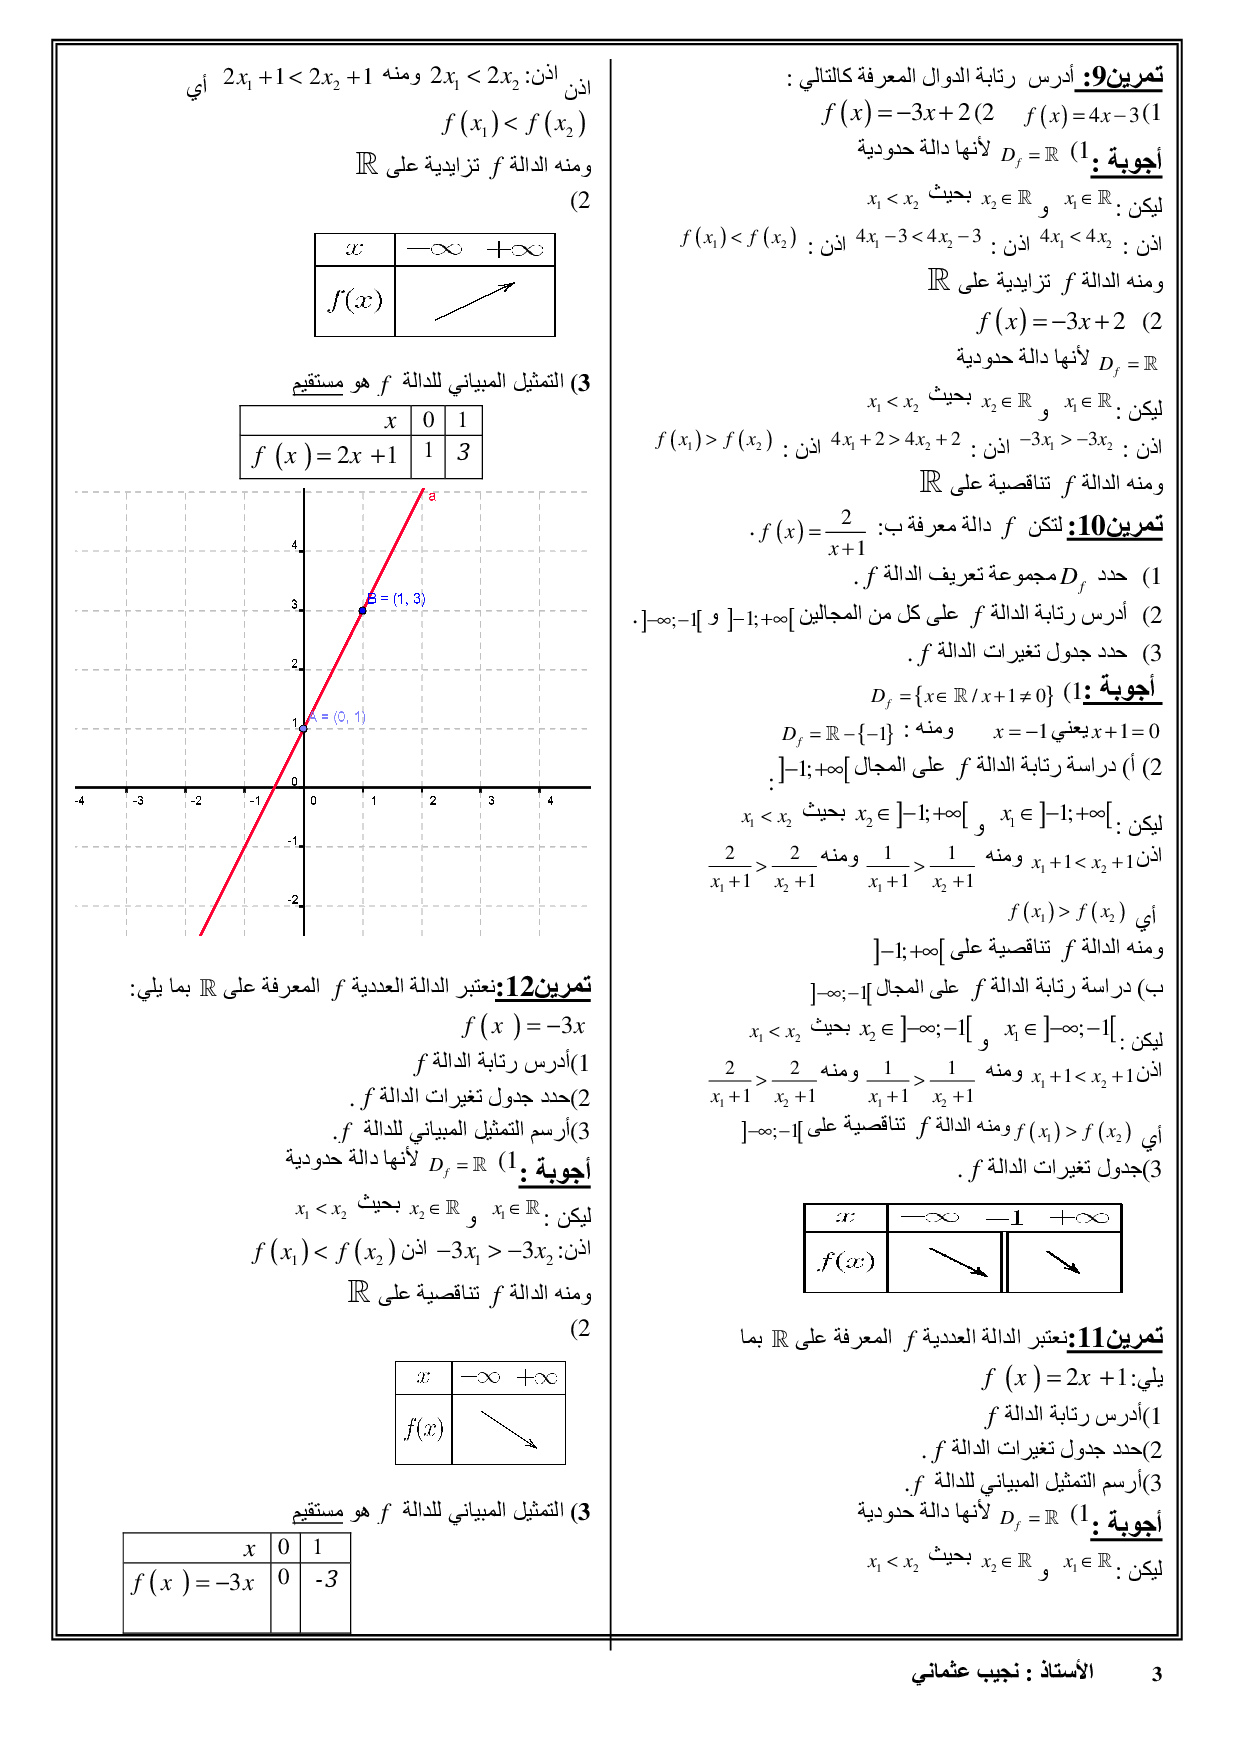 تمرين9: أدرس رتابة الدوال المعرفة كالتالي :
1) f(x)=4x−3 2) f(x)=−3x+2
أجوبة : 1) D_f=ℝ لأنها دالة حدودية
ليكن : x₁∈ℝ و x₂∈ℝ بحيث x₁<x₂
اذن : 4x₁<4x₂ اذن : 4x₁−3<4x₂−3 اذن : f(x₁)<f(x₂)
ومنه الدالة f تزايدية على ℝ
2) f(x)=−3x+2
D_f=ℝ لأنها دالة حدودية
ليكن : x₁∈ℝ و x₂∈ℝ بحيث x₁<x₂
اذن : −3x₁>−3x₂ اذن : 4x₁+2>4x₂+2 اذن : f(x₁)>f(x₂)
ومنه الدالة f تناقصية على ℝ
تمرين10: لتكن f دالة معرفة ب: f(x)=2/(x+1) .
1) حدد D_f مجموعة تعريف الدالة f .
2) أدرس رتابة الدالة f على كل من المجالين ]−1;+∞[ و ]−∞;−1[ .
3) حدد جدول تغيرات الدالة f .
أجوبة : 1) D_f={x∈ℝ/x+1≠0}
x+1=0 يعني x=−1 ومنه : D_f=ℝ−{−1}
2) أ) دراسة رتابة الدالة f على المجال ]−1;+∞[ :
ليكن : x₁∈]−1;+∞[ و x₂∈]−1;+∞[ بحيث x₁<x₂
اذن x₁+1<x₂+1 ومنه 1/(x₁+1)>1/(x₂+1) ومنه 2/(x₁+1)>2/(x₂+1)
أي f(x₁)>f(x₂)
ومنه الدالة f تناقصية على ]−1;+∞[
ب) دراسة رتابة الدالة f على المجال ]−∞;−1[
ليكن : x₁∈]−∞;−1[ و x₂∈]−∞;−1[ بحيث x₁<x₂
اذن x₁+1<x₂+1 ومنه 1/(x₁+1)>1/(x₂+1) ومنه 2/(x₁+1)>2/(x₂+1)
أي f(x₁)>f(x₂) ومنه الدالة f تناقصية على ]−∞;−1[
3)جدول تغيرات الدالة f .
x −∞ −1 +∞
f(x)
تمرين11:نعتبر الدالة العددية f المعرفة على ℝ بما
يلي: f(x)=2x+1
1)أدرس رتابة الدالة f
2)حدد جدول تغيرات الدالة f .
3)أرسم التمثيل المبياني للدالة f .
أجوبة : 1) D_f=ℝ لأنها دالة حدودية
ليكن : x₁∈ℝ و x₂∈ℝ بحيث x₁<x₂
اذن اذن: 2x₁<2x₂ ومنه 2x₁+1<2x₂+1 أي
f(x₁)<f(x₂)
ومنه الدالة f تزايدية على ℝ
2)
x −∞ +∞
f(x)
3) التمثيل المبياني للدالة f هو مستقيم
x 0 1
f(x)=2x+1 1 3
a
4
B = (1, 3)
3
2
1
A = (0, 1)
0
-4 -3 -2 -1 0 1 2 3 4
-1
-2
تمرين12:نعتبر الدالة العددية f المعرفة على ℝ بما يلي:
f(x)=−3x
1)أدرس رتابة الدالة f
2)حدد جدول تغيرات الدالة f .
3)أرسم التمثيل المبياني للدالة f .
أجوبة : 1) D_f=ℝ لأنها دالة حدودية
ليكن : x₁∈ℝ و x₂∈ℝ بحيث x₁<x₂
اذن: −3x₁>−3x₂ اذن f(x₁)<f(x₂)
ومنه الدالة f تناقصية على ℝ
2)
x −∞ +∞
f(x)
3) التمثيل المبياني للدالة f هو مستقيم
x 0 1
f(x)=−3x 0 -3
الأستاذ : نجيب عثماني 3